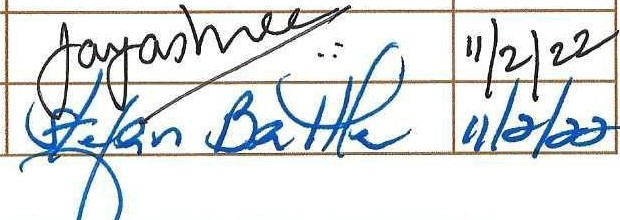 Jayashree 11/2/22
Stefan Battle 11/2/22